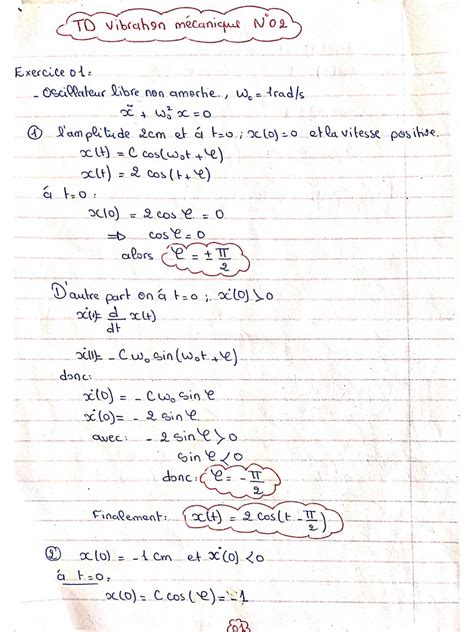 TD Vibration mécanique N°02
Exercice 01:
- Oscillateur libre non amortie, ω₀ = 1 rad/s
ẍ + ω₀² x = 0
① l'amplitude 2cm et á t=0; x(0)=0 et la vitesse positive.
x(t) = C cos(ω₀t + φ)
x(t) = 2 cos(t + φ)
á t=0:
x(0) = 2 cos φ = 0
⇒ cos φ = 0
alors φ = ± π/2
D'autre part on á t=0; ẋ(0) > 0
ẋ(t) = d/dt x(t)
ẋ(t) = - C ω₀ sin(ω₀t + φ)
donc:
ẋ(0) = - C ω₀ sin φ
ẋ(0) = - 2 sin φ
avec: - 2 sin φ > 0
sin φ < 0
donc: φ = - π/2
Finalement: x(t) = 2 cos(t - π/2)
② x(0) = -1 cm et ẋ(0) < 0
á t=0,
x(0) = C cos(φ) = -1
01